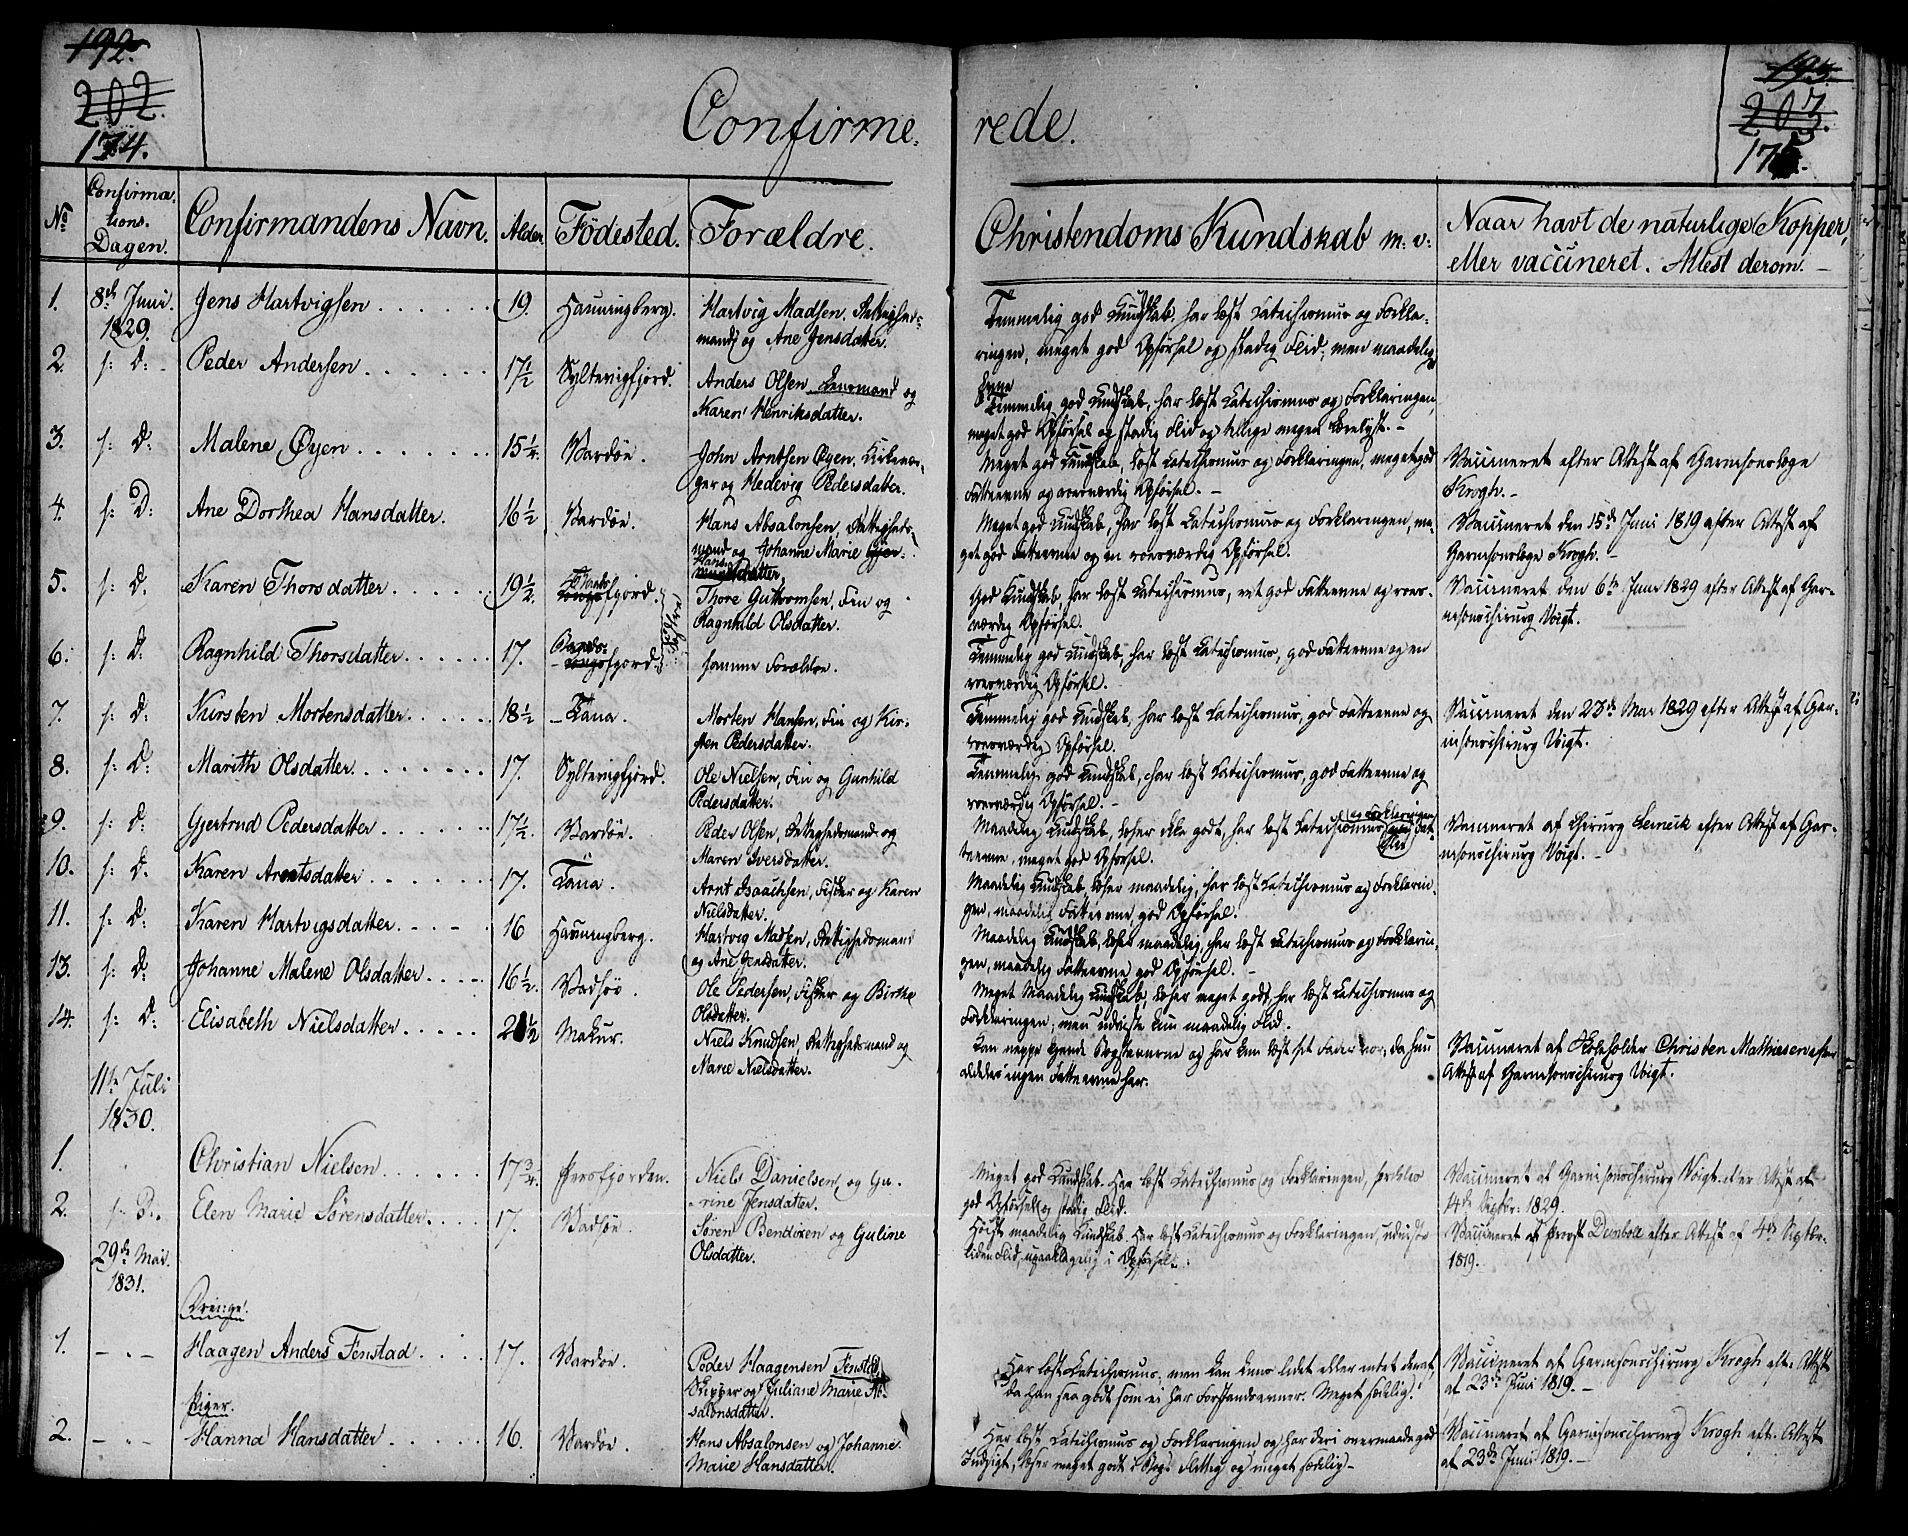 192.
202.
174.
Confirme,
rede.
193.
203.
175.
No
Confirma,
tions.
Dagen.
Confirmandens Navn.
Alder
Födested.
Forældre.
Christendoms Kundskab m: v:
Naar havt de naturlige Kopper,
eller vaccineret. Attest derom.
1.
8de Juni
1829.
Jens Hartvigsen
19.
Havningberg.
Hartvig Madsen, Rettigheds-
mand og Ane Jensdatter.
Temmelig god Kundskab, har læst Catechismus og Forkla-
ringen, meget god Opförsel og stadig Flid; men maadelig
2.
s: D:
Peder Andersen
17 1/2
Syltevigfjord.
Anders Olsen, Lensmand og
Karen Henriksdatter.
Temmelig god Kundskab, har læst Catechismus og Forklaringen,
meget god Opförsel og stadig Flid og tillige megen Lærelyst.
3.
s: D:
Malene Öyen
15 1/4.
Vardöe.
John Arntsen Öyen, Kirkevær-
ger og Hedevig Pedersdatter.
Meget god Kundskab, læst Catechismus og Forklaringen, meget god
Fatteevne og roesværdig Opförsel.
Vaccineret efter Attest af Garnisonslæge
Krogh.
4.
s: D:
Ane Dorthea Hansdatter.
16 1/2
Vardöe.
Hans Absalonsen, Rettigheds-
mand og Johanne Marie
Hans-
datter.
Meget god Kundskab, har læst Catechismus og Forklaringen, me-
get god Fatteevne og en roesværdig Opförsel.
Vaccineret den 15de Juni 1819 efter Attest af
Garnisonslæge Krogh.
5.
s: D.
Karen Thorsdatter
19 1/2.
fjord.
Thore Guttormsen, Fin og
Ragnhild Olsdatter.
God Kundskab, har læst Catechismus, ret god Fatteevne og roes-
værdig Opförsel.
Vaccineret den 6te Juni 1829 efter Attest af Gar-
nisonschirurg Voigt.
6.
s: D.
Ragnhild Thorsdatter
17.
fjord.
samme Forældre.
Temmelig god Kundskab, har læst Catechismus, god Fatteevne og en
roesværdig Opförsel.
7.
s: D:
Kirsten Mortensdatter
18 1/2
Tana.
Morten Hansen, Fin og Kir-
sten Pedersdatter.
Temmelig god Kundskab, har læst Catechismus, god Fatteevne og
roesværdig Opförsel.
Vaccineret den 23de Mai 1829 efter Attest af Gar-
nisonschirurg Voigt.
8.
s: D:
Marith Olsdatter
17.
Syltevigfjord.
Ole Nielsen, Fin og Gunhild
Pedersdatter.
Temmelig god Kundskab, har læst Catechismus, god Fatteevne og
roesværdig Opförsel.
9.
s: D:
Gjertrud Pedersdatter
17 1/2.
Vardöe.
Peder Olsen, Rettighedsmand og
Maren Iversdatter.
og Forklaringen
Maadelig Kundskab, læser ikke godt, har læst Catechismus
teevne, meget god Opförsel.
Vaccineret af Chirurg efter Attest af Gar-
nisonschirurg Voigt.
10.
s: D.
Karen Arntsdatter
17.
Tana.
Arnt Isaachsen, Fisker og Karen
Nielsdatter.
Maadelig Kundskab, læser maadelig, har læst Catechismus og Forklarin-
gen, maadelig Fatteevne, god Opförsel.
11.
s: D:
Karen Hartvigsdatter
16
Havningberg.
Hartvig Madsen, Rettighedsmand
og Ane Jensdatter.
Maadelig Kundskab, læser maadelig, har læst Catechismus og Forklarin-
gen, maadelig Fatteevne, god Opförsel.
13.
s: D:
Johanne Malene Olsdatter
16 1/2.
Vadsöe.
Ole Pedersen, Fisker og Birthe
Olsdatter.
Meget Maadelig Kundskab, læser meget godt, har læst Catechismus og
Forklaringen; men udviste kun maadelig Flid.
14.
s: D:
Elisabeth Nielsdatter
21 1/2
Makur.
Niels Knudsen, Rettighedsmand og
Marie Nielsdatter.
Kan neppe kjende Bogstaverne og har kun læst sit Fader vor, da hun
aldeles ingen Fatteevne har.
Vaccineret af Skoleholder Christen Mathiesen efter
Attest af Garnisonschirurg Voigt.
11te Juli
1830.
1.
Christian Nielsen
17 3/4.
Persfjorden.
Niels Danielsen og Gu-
rine Jensdatter.
Meget god Kundskab. Har læst Catechismus og Forklaringen, særdeles
god Opförsel og stadig Flid.
Vaccineret af Garnisonschirurg Voigt efter Attest af
14de Septbr: 1829.
2.
s: D.
Elen Marie Sörensdatter
17.
Vadsöe.
Sören Bendixen og Guline
Olsdatter.
Höist maadelig Kundskab. Har læst Catechismus og Forklaringen, udviste
liden Flid, upaaklagelig i Opförsel.
Vaccineret af Provst Deinboll efter Attest af 4de Septbr.
1819.
29de Mai
1831.
Drenge.
1.
Haagen Anders Fenstad
17.
Vardöe.
Peder Haagensen Fenstad
Skipper og Juliane Marie Ab-
salonsdatter.
Har læst Catechismus; men kan kuns lidet eller intet deraf,
da han saa godt som ei har Forstandsevner. Meget sædelig.
Vaccineret af Garnisonschirurg Krogh eft. Attest
af 23de Juni 1819.
Piger.
2.
Hanna Hansdatter
16.
Vardöe.
Hans Absalonsen og Johanne
Marie Hansdatter.
Har læst Catechismus og Forklaringen og har deri overmaade god
Indsigt, læser meget godt i Bog. Flittig og meget sædelig
Vaccineret af Garnisonschirurg Krogh eft. Attest
af 23de Juni 1819.